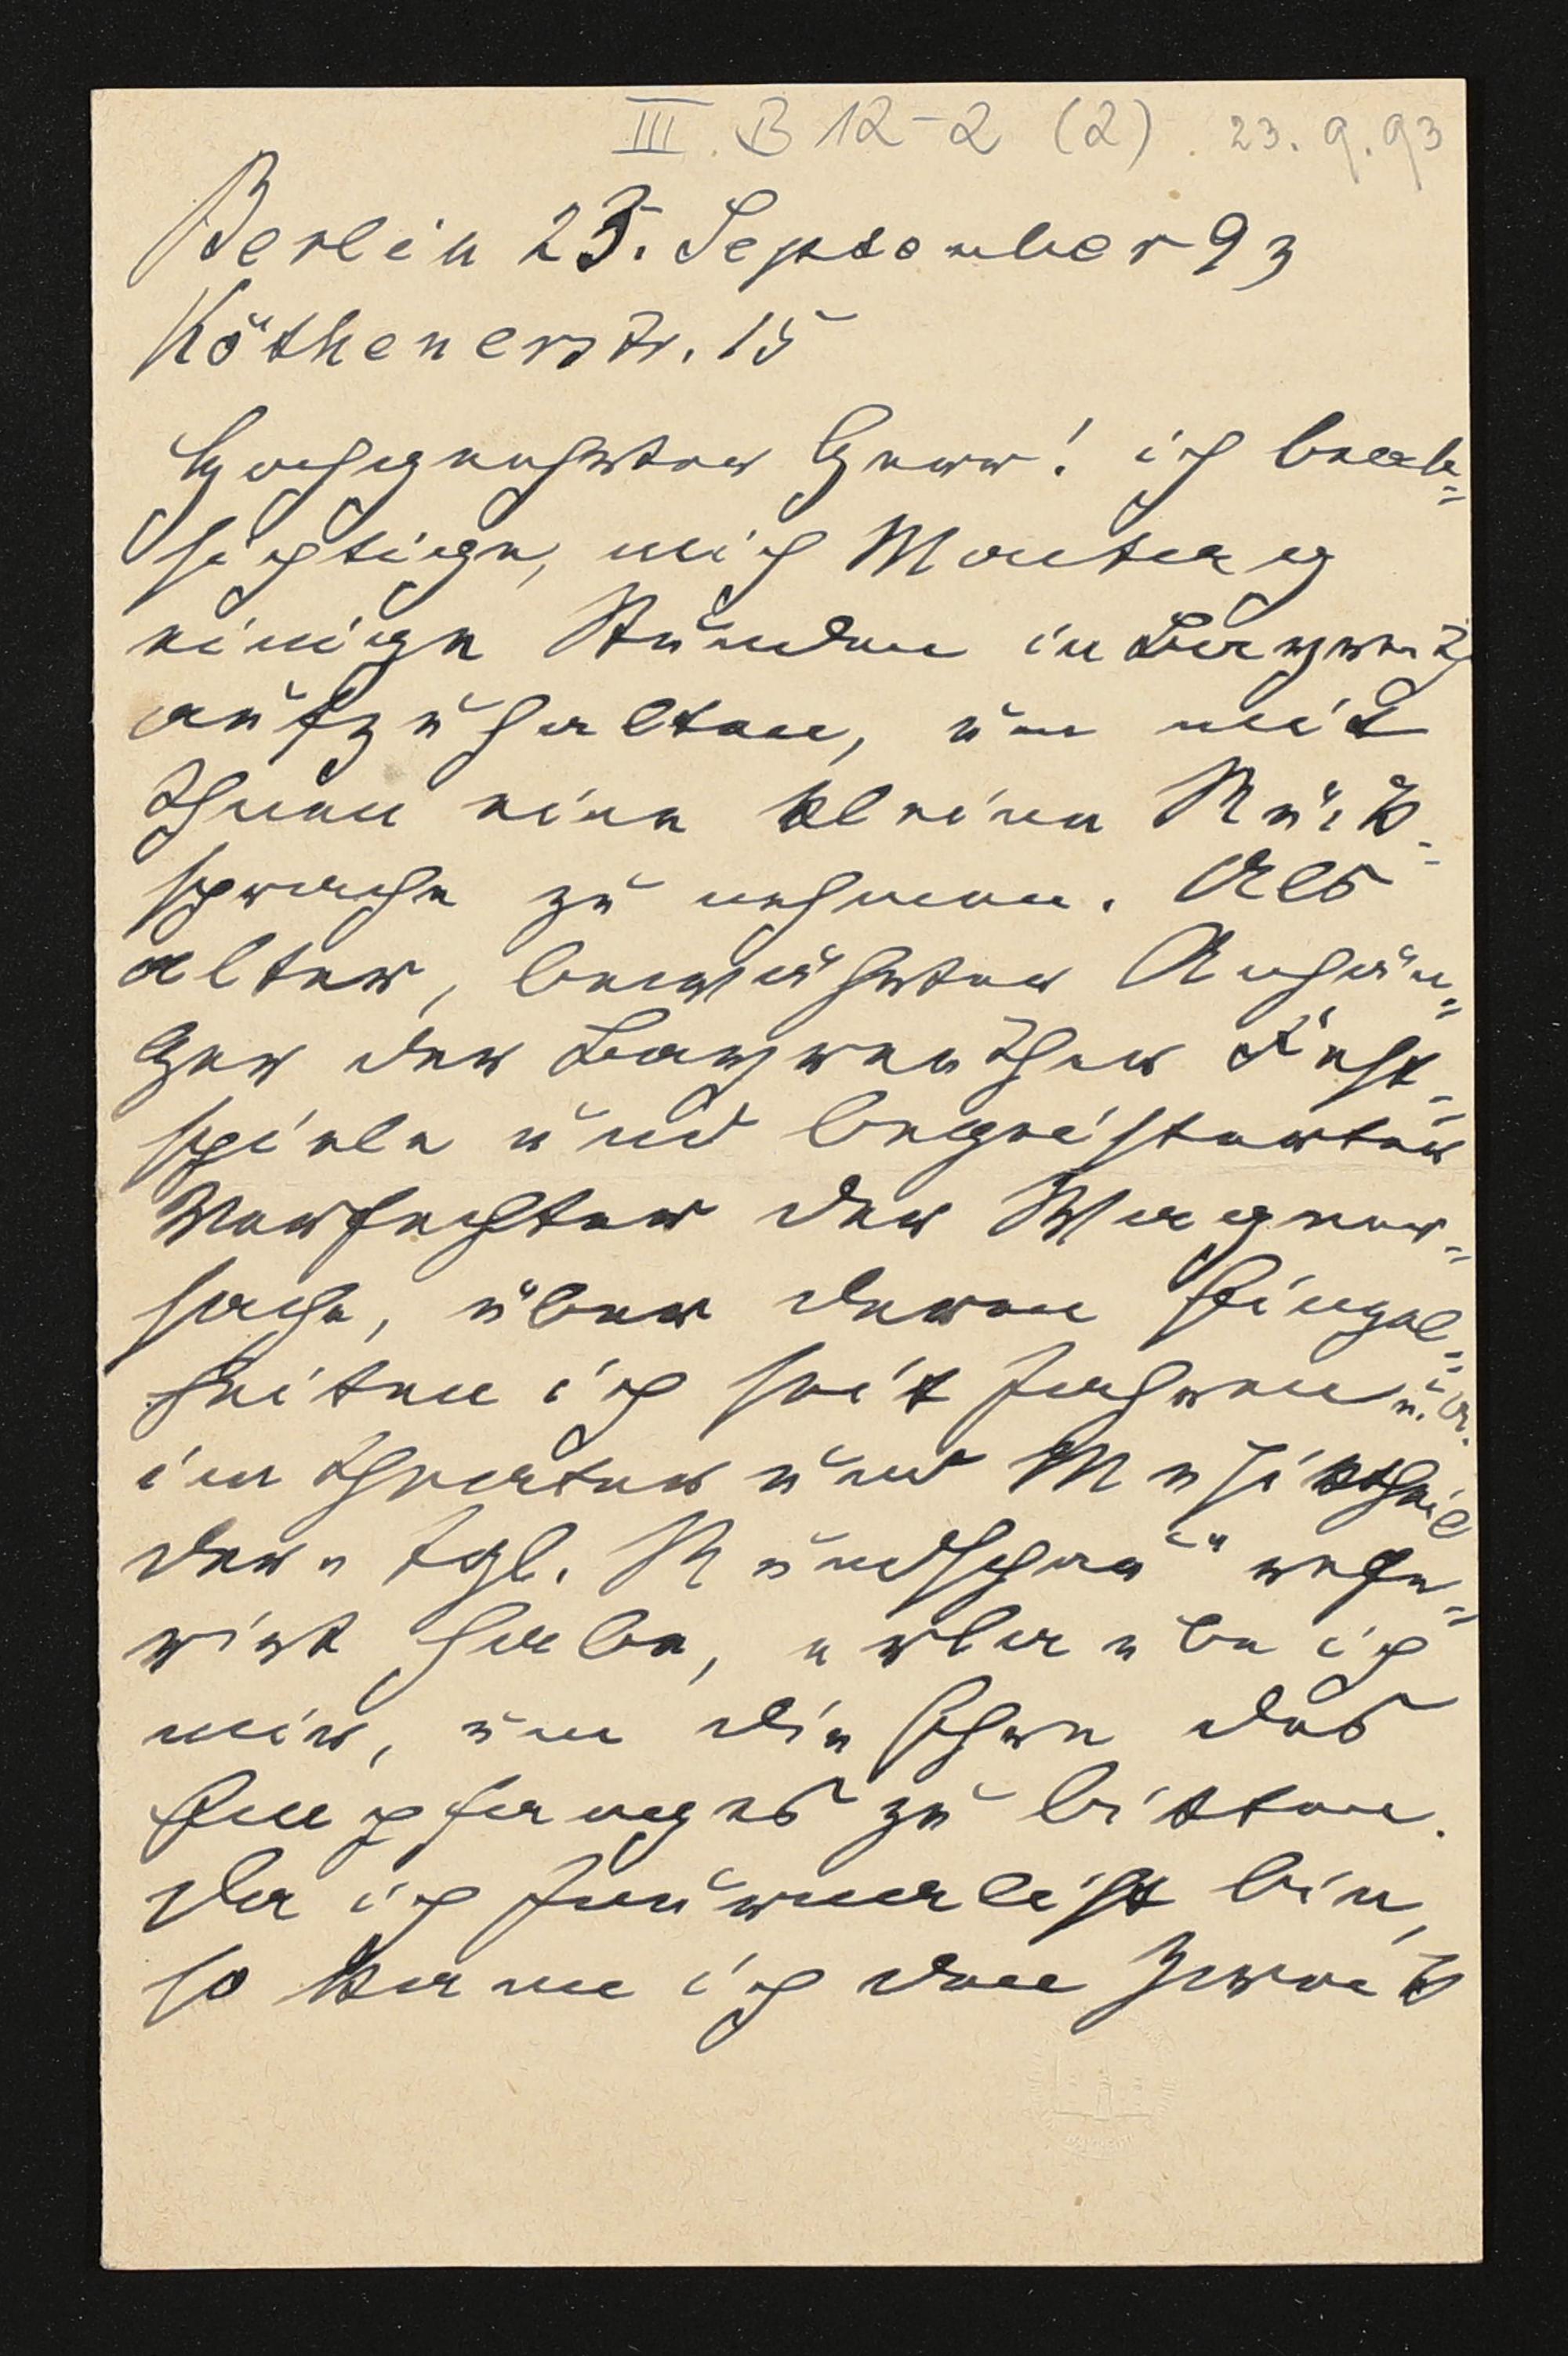 III. B 12-2 (2). 23.9.93
Berlin 23. September 93
Köthenerstr. 15
Hochgeehrter Herr! ich beab=
sichtige, mich Montag
einige Stunden in Bayreuth
aufzuhalten, um mit
Ihnen eine kleine Rück=
sprache zu nehmen. Als
alter, bewährter Anhän=
ger der Bayreuther Fest=
spiele und begeisterter
Verfechter der Wagner=
sache, über deren Einzel=
heiten ich seit Jahren u. A.
im Theater und Musiktheil
der „Tägl. Rundschau" refe=
rirt habe, erlaube ich
mir, um die Ehre des
Empfanges zu bitten.
Da ich Journalist bin,
so kann ich den Zweck